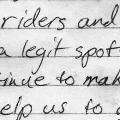 riders and
a legit spot
tinue to mak
elp us to